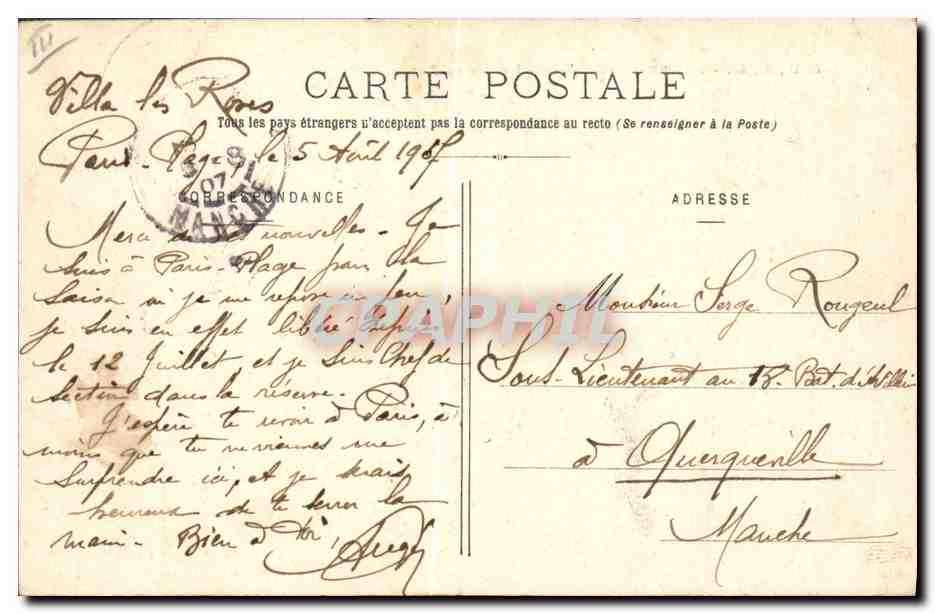 III
CARTE POSTALE
Tous les pays étrangers n'acceptent pas la correspondance au recto (Se renseigner à la Poste)
Villa les Roses
Paris-Plage, le 5 Août 1907
8
07
MANCHE
CORRESPONDANCE
Merci de nouvelles. Je
suis à Paris-Plage pour la
saison où je me repose un peu,
je suis en effet libéré depuis
le 12 Juillet, et je suis Chef de
Section dans la réserve.
J'espère te revoir à Paris, à
moins que tu ne viennes me
surprendre ici, et je serais
heureux de te serrer la
main. Bien à toi,
ADRESSE
Monsieur Serge Rougeul
Sous-Lieutenant au 18 Bat. d'Artillerie
à Querqueville
Manche
CPAPHIL